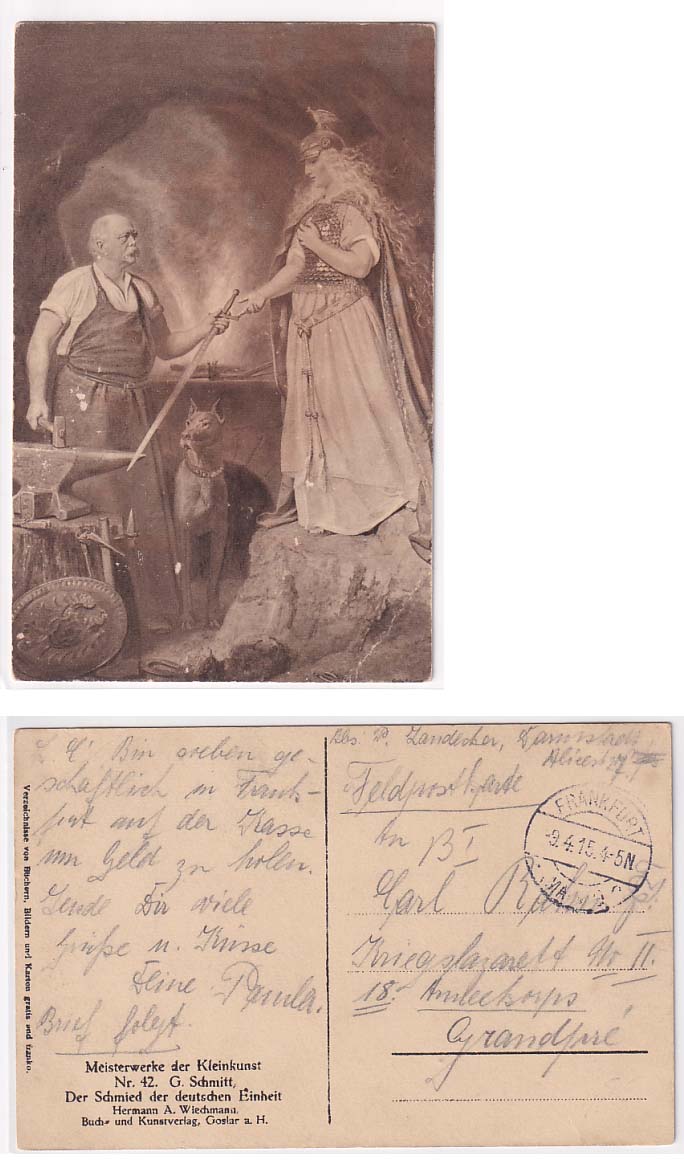 L. C! Bin soeben ge-
schäftlich in Frank-
furt auf der Kasse
um Geld zu holen.
Sende Dir viele
Grüße u. Küsse
Deine Paula.
Brief folgt.
Verzeichnisse von Büchern, Bildern und Karten gratis und franko.
Meisterwerke der Kleinkunst
Nr. 42. G. Schmitt,
Der Schmied der deutschen Einheit
Hermann A. Wiechmann,
Buch- und Kunstverlag, Goslar a. H.
Abs. P. Landecker, Darmstadt,
Alicestr.
Feldpostkarte
FRANKFURT
-9.4.15.4-5N
(MAIN)
An
Carl
Kriegslazarett No II.
18. Armeekorps
Grandpré